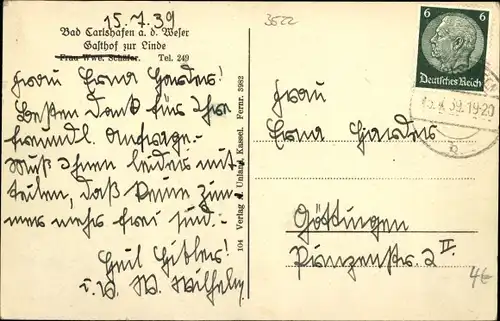 15.7.39
3522
Bad Carlshafen a. d. Weser
Gasthof zur Linde
Frau Wwe. Schäfer. Tel. 249
Frau Erna Harder!
Besten Dank für Ihre
freundl. Anfrage.
Muß Ihnen leider mit-
teilen, daß keine Zim-
mer mehr frei sind.
Heil Hitler!
i. V. W. Wilhelm
104 Verlag A. Unland, Kassel. Fernr. 3982
6 6
Deutsches Reich
39.19-20
Frau
Erna Harder
Göttingen
Prinzenstr. 2 II.
4€